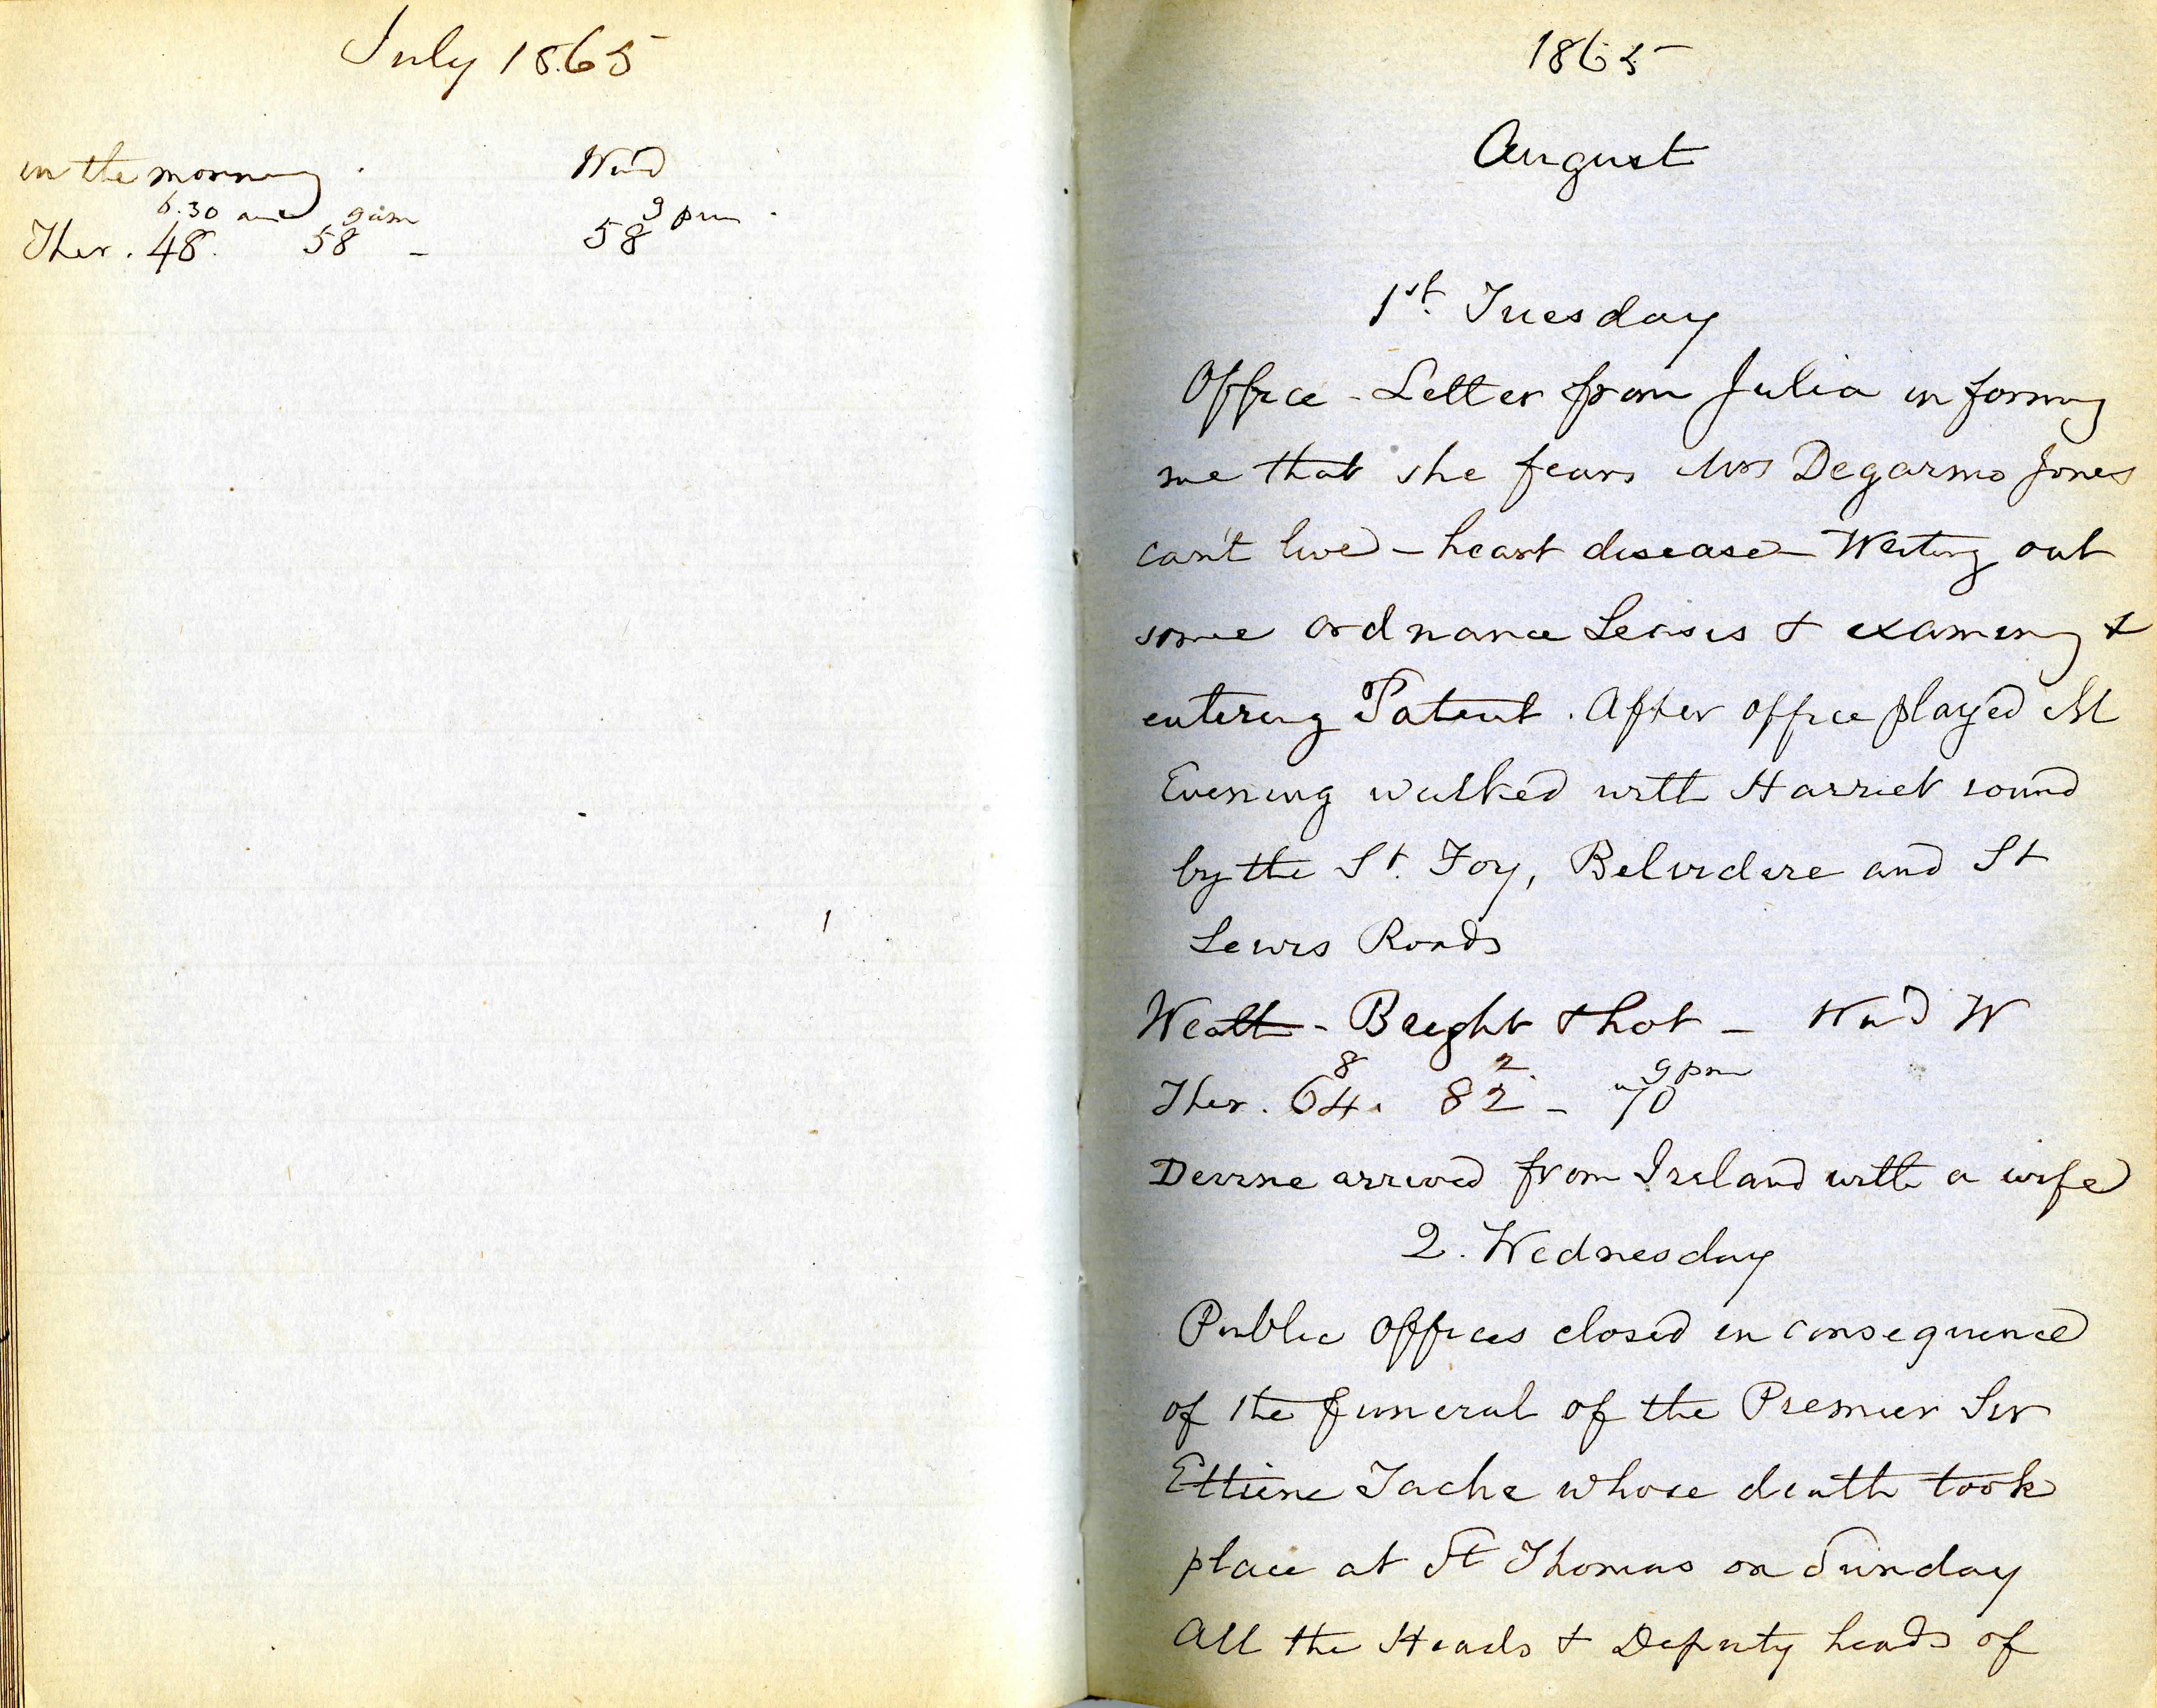 July 1865
in the morning. Wind
6.30 am 9 am 9 pm.
Ther. 48. 58 - 58
1865
August
1st. Tuesday
Office - Letter from Julia informing
me that she fears Mrs Degarmo Jones
can't live - heart disease - Writing out
some ordnance Leases & examining &
entering Patent. After office played
Evening walked with Harriet round
by the St. Foy, Belvidere and St
Lewis Roads
Weath - Bright & hot - Wind W
8 2. 9 pm
Ther. 64. 82 - 70
Devine arrived from Ireland with a wife
2. Wednesday
Public offices closed in consequence
of the funeral of the Premier Sir
Ettiene Tache whose death took
place at St Thomas on Sunday
All the Heads & Deputy heads of